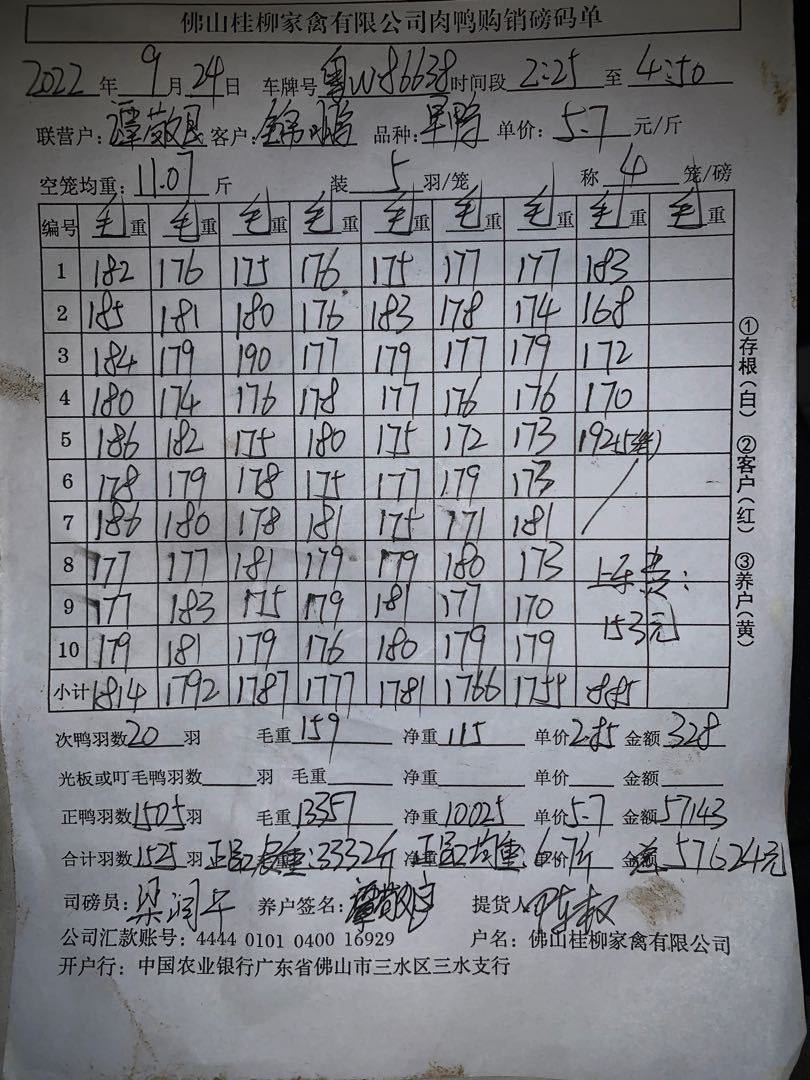 佛山桂柳家禽有限公司肉鸭购销磅码单
2022年9月24日 车牌号粤W86638时间段2:25至4:50
联营户:谭敬 客户:锦鹏 品种:旱鸭 单价:5.7元/斤
空笼均重:11.07斤 装5羽/笼 称4笼/磅
编号 毛重 毛重 毛重 毛重 毛重 毛重 毛重 毛重 毛重
1 182 176 175 176 175 177 177 183
2 185 181 180 176 183 178 174 168
3 184 179 190 177 179 177 179 172
4 180 174 176 178 177 176 176 170
5 186 182 175 180 175 172 173 192(5笼)
6 178 179 178 175 177 179 173
7 186 180 178 181 175 171 181
8 177 177 181 179 179 180 173 上车费:
9 177 183 175 179 181 177 170 153元
10 179 181 179 176 180 179 179
小计 1814 1792 1787 1777 1781 1766 1755 885
次鸭羽数20羽 毛重159 净重115 单价2.85 金额328
光板或叮毛鸭羽数 羽 毛重 净重 单价 金额
正鸭羽数1505羽 毛重13357 净重10025 单价5.7 金额57143
合计羽数1525羽 正品 重:3332斤 正品均重:6.7斤 57624元
司磅员:梁润 养户签名:谭敬 提货人
公司汇款账号:4444 0101 0400 16929 户名:佛山桂柳家禽有限公司
开户行:中国农业银行广东省佛山市三水区三水支行
①存根(白) ②客户(红) ③养户(黄)